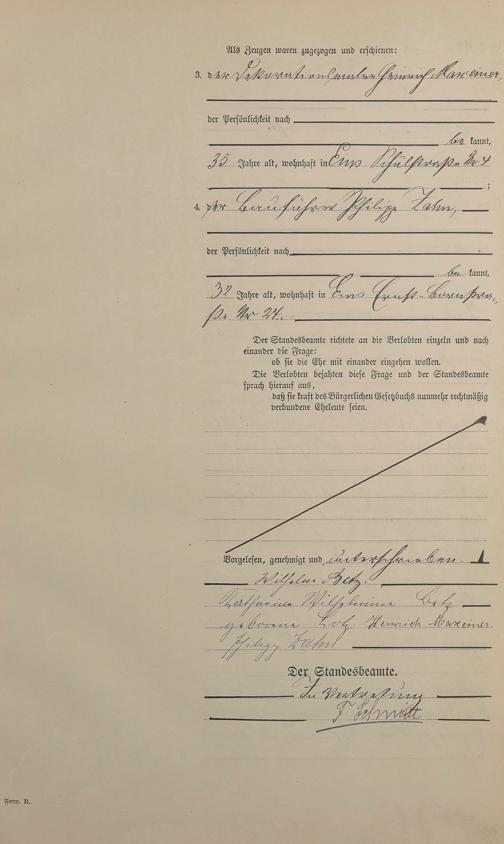 Als Zeugen waren zugezogen und erschienen:
3. der Dekorationsmaler Heinrich Maxeiner,
der Persönlichkeit nach
be kannt,
35 Jahre alt, wohnhaft in Ems Schulstraße Nr 4
;
4. der Bauführer Philipp Zahn,
der Persönlichkeit nach
be kannt,
32 Jahre alt, wohnhaft in Ems
ße Nr 24.
Der Standesbeamte richtete an die Verlobten einzeln und nach
einander die Frage:
ob sie die Ehe mit einander eingehen wollen.
Die Verlobten bejahten diese Frage und der Standesbeamte
sprach hierauf aus,
daß sie kraft des Bürgerlichen Gesetzbuchs nunmehr rechtmäßig
verbundene Eheleute seien.
Vorgelesen, genehmigt und unterschrieben.
Wilhelm Betz.
Katharina Wilhelmine Betz
geborene Heinrich Maxeiner
Philipp Zahn
Der Standesbeamte.
In Vertretung
F. Schmitt
Form. B.